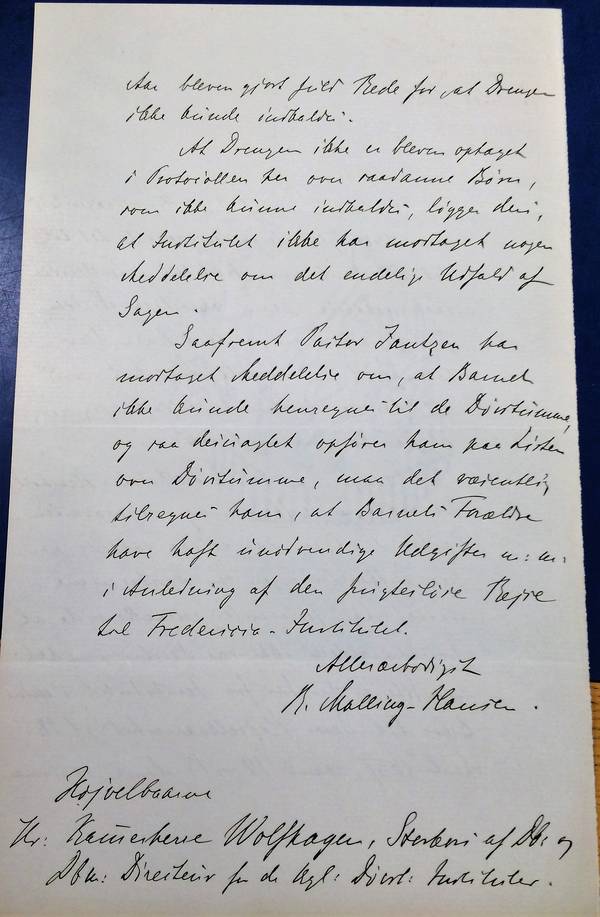 Aar bleven gjort fuld Rede for, at Drengen
ikke kunde indkaldes.
At Drengen ikke er bleven optaget
i Protocollen her over saadanne Børn,
som ikke kunne indkaldes, ligger deri,
at Institutet ikke har modtaget nogen
Meddelelse om det endelige Udfald af
Sagen.
Saafremt Pastor Jantzen har
modtaget Meddelelse om, at Barnet
ikke kunde henregnes til de Døvstumme,
og saa desuagtet opfører ham paa Listen
over Døvstumme, maa det væsentlig
tilregnes ham, at Barnets Forældre
have haft unødvendige Udgifter m: m:
i Anledning af den frugtesløse Rejse
til Fredericia-Institutet.
Allerærbødigst
R. Malling-Hansen.
Højvelbaarne
Hr: Kammerherre Wolfhagen, Storkors af Db: og
Dbm: Directeur for de kgl: Døvst: Instituter.